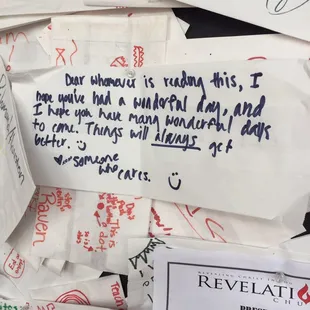 Dear whomever is reading this, I
hope you've had a wonderful day, and
I hope you have many wonderful days
to come. Things will always get
better. :)
♥...someone
who
cares. :)
Raven
This
dot
REVELATI
CHU
PRES